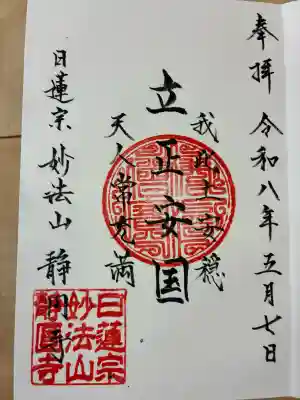 奉拝 令和八年五月七日
我此土安穏
立正安国
天人常充満
日蓮宗 妙法山 静円寺
日蓮宗
妙法山
静圓寺